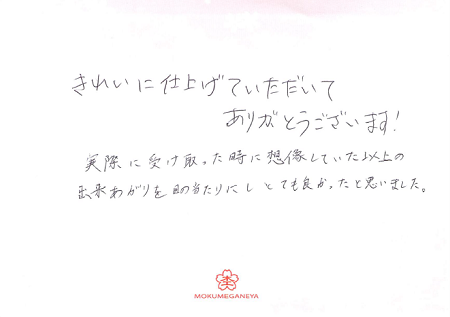 きれいに仕上げていただいて
ありがとうございます!
実際に受け取った時に想像していた以上の
出来あがりを目の当たりにしとても良かったと思いました。
MOKUMEGANEYA